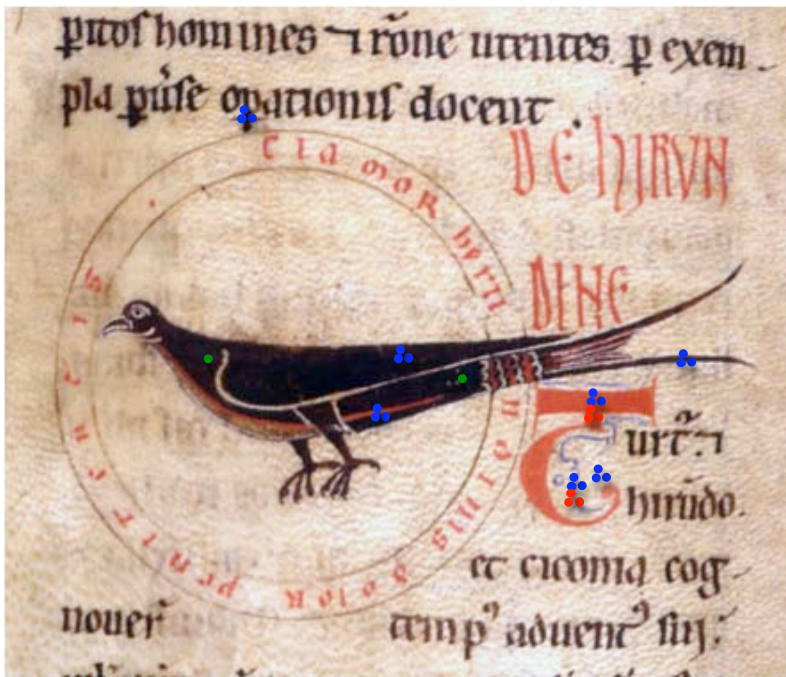 ꝑitoſ homines ⁊ rōne utentes. ꝑ exem
pla ꝓṕſe oꝑationiſ docent.
DE hIRVN
DINE
clamor hyrundinis dolor penitentis
Turt̃. ⁊
hirũdo.
et ciconia cog
nouer̃ tempꝰ aduent᾽ ſuı̨: